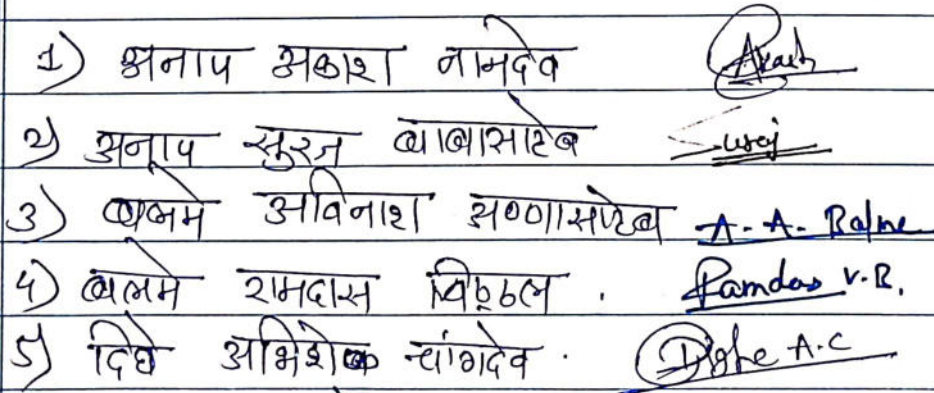 1) अनाप अकाश नामदेव Akash
2) अनाप सुरज बाबासाहेब Suraj
3) बलमे अविनाश अण्णासाहेब A. A. Balme
4) बलमे रामदास विठ्ठल . Ramdas V.B.
5) दिघे अभिशेक चांगदेव . Dighe A.C